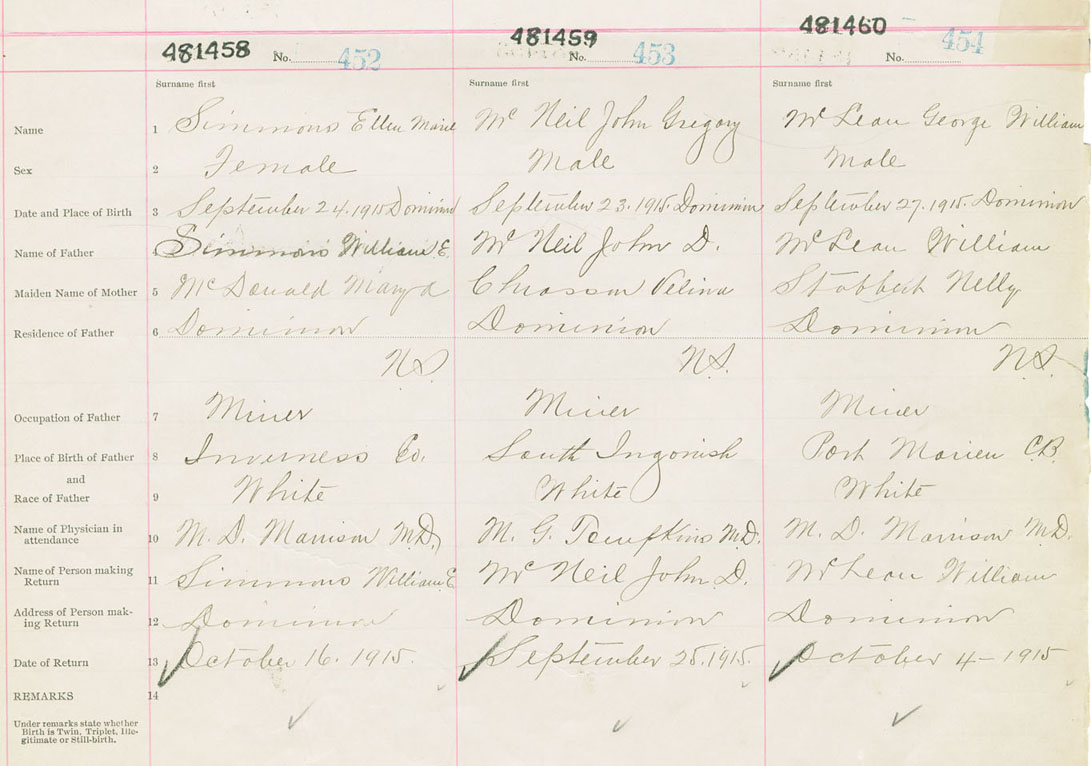 481458 No. 452 481459 No. 453 481460 No. 454
Surname first Surname first Surname first
Name 1 Simmons Ellen Marie Mc Neil John Gregory McLean George William
Sex 2 Female Male Male
Date and Place of Birth 3 September 24. 1915 Dominion September 23. 1915. Dominion September 27. 1915. Dominion
Name of Father 4 Simmons William E. Mc Neil John D. McLean William
Maiden Name of Mother 5 McDonald Mary Chiasson Velina Stubbert Nelly
Residence of Father 6 Dominion Dominion Dominion
N.S. N.S. N.S.
Occupation of Father 7 Miner Miner Miner
Place of Birth of Father 8 Inverness Co. South Ingonish Port Morien C.B.
and
Race of Father 9 White White White
Name of Physician in
attendance 10 M. D. Morrison M.D. M. G. Tompkins M.D. M. D. Morrison M.D.
Name of Person making
Return 11 Simmons William E Mc Neil John D. McLean William
Address of Person mak-
ing Return 12 Dominion Dominion Dominion
Date of Return 13 October 16. 1915. September 25. 1915. October 4 - 1915
REMARKS 14
Under remarks state whether
Birth is Twin, Triplet, Ille-
gitimate or Still-birth.